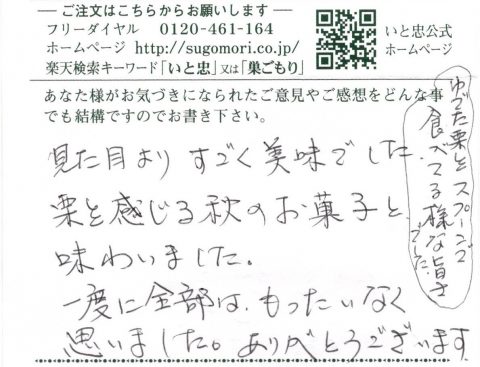 ご注文はこちらからお願いします
フリーダイヤル 0120-461-164
ホームページ http://sugomori.co.jp/
楽天検索キーワード「いと忠」又は「巣ごもり」
いと忠公式
ホームページ
あなた様がお気づきになられたご意見やご感想をどんな事
でも結構ですのでお書き下さい。
見た目よりすごく美味でした.
栗を感じる秋のお菓子と
味わいました。
一度に全部は、もったいなく
思いました。ありがとうございます
ゆでた栗をスプーンで
食べてる様な旨さ
でした